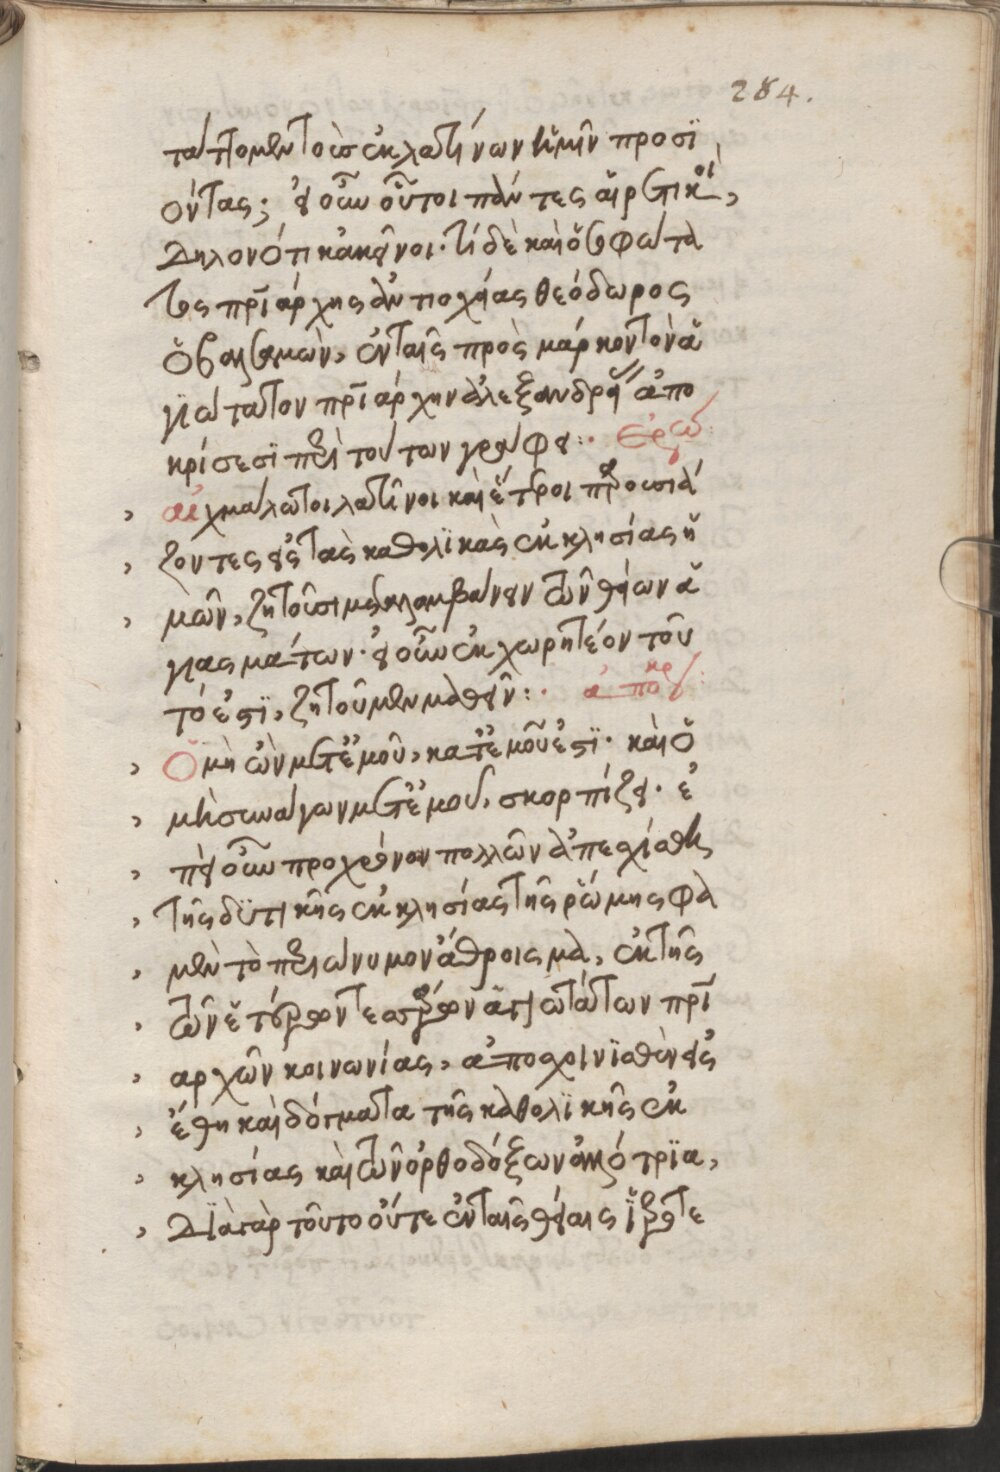 284.
ταττομεν τοὺς ἐκ λατίνων ἡμῖν προσϊ
όντας; εἰ οὖν οὗτοι πάντες αἱρετικοὶ,
δηλονότι κἀκεῖνοι. τί δὲ καὶ ὁ σοφώτα
τος πριάρχης ἀντιοχείας θεόδωρος
ὁ βαλσαμὼν, ἐν ταῖς πρὸς μάρκον τὸν ἁ
γιώτατον πριάρχην ἀλεξανδρείας ἀπο
κρίσεσι περὶ τούτων γράφει: ἐρώ
αἰχμάλωτοι λατῖνοι καὶ ἕτεροι προσιά
ζοντες εἰς τὰς καθολικὰς ἐκκλησίας ἡ
μῶν, ζητοῦσι μεταλαμβάνειν τῶν θείων ἁ
γιασμάτων. εἰ οὖν ἐκχωρητέον τοῦ
τό ἐστι, ζητοῦμεν μαθεῖν: ἀποκρ
Ὁ μὴ ὢν μετ' ἐμοῦ, κατ' ἐμοῦ ἐστι. καὶ ὁ
μὴ συνάγων μετ' ἐμοῦ, σκορπίζει. ἐ
πεὶ οὖν πρὸ χρόνων πολλῶν ἀπεσχίσθη
τῆς δυτικῆς ἐκκλησίας τῆς ῥώμης φα
μὲν τὸ περιώνυμον ἄθροισμα, ἐκ τῆς
τῶν ἑτέρων τεσσάρων ἁγιωτάτων πρι
αρχῶν κοινωνίας, ἀποσχοινισθὲν εἰς
ἔθη καὶ δόγματα τῆς καθολικῆς ἐκ
κλησίας καὶ τῶν ὀρθοδόξων ἀλλότρια,
διὰ γὰρ τοῦτο οὔτε ἐν ταῖς θείαις ἱερο